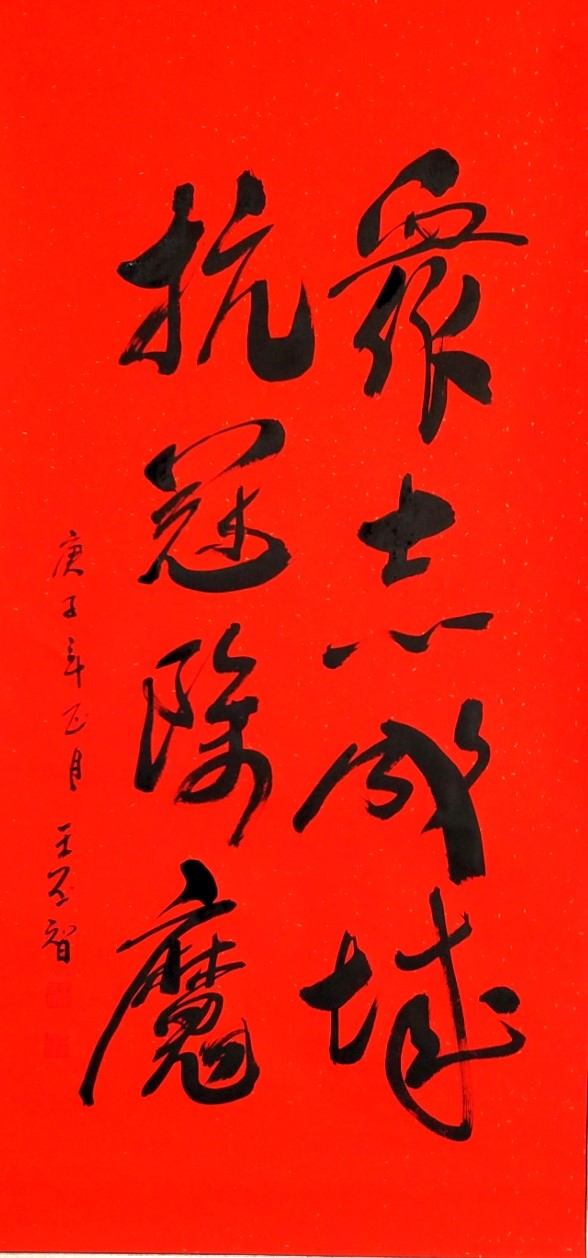 衆志成城
抗冠除魔
庚子年正月 王 智